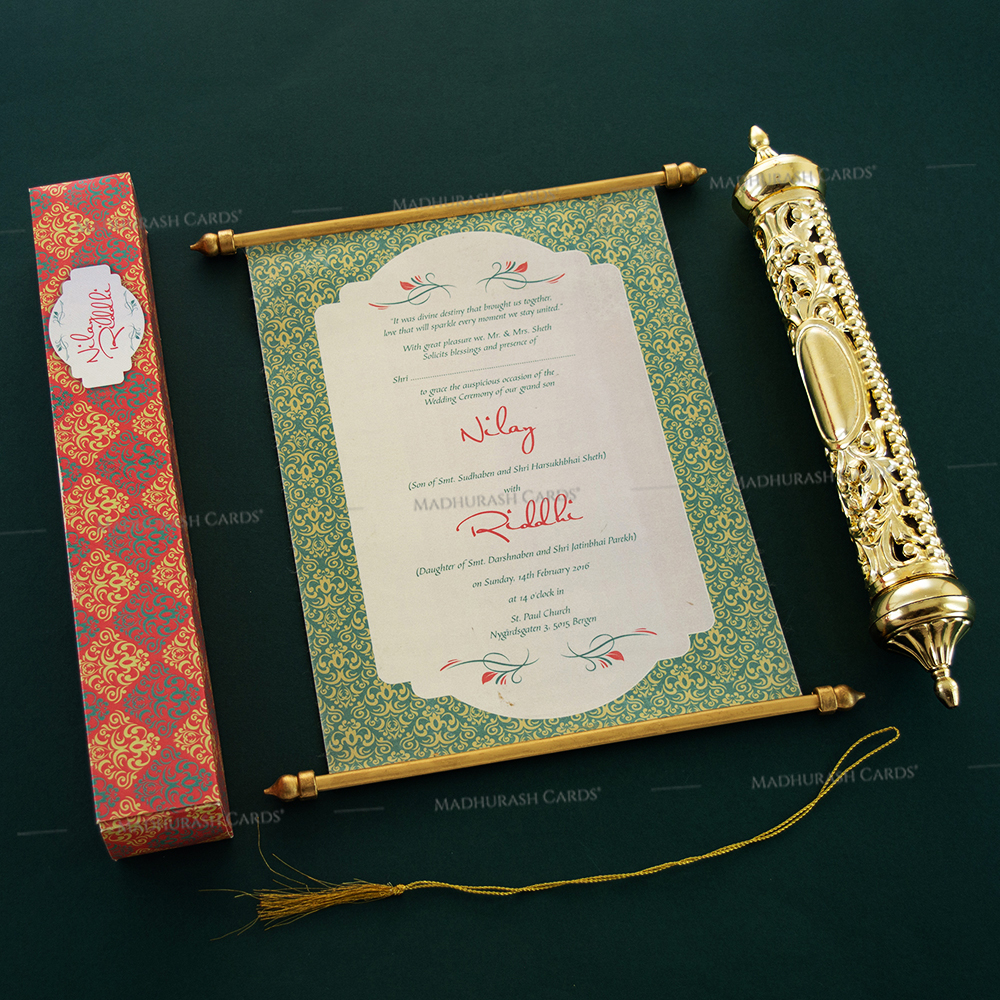 Nilay
Riddhi
"It was divine destiny that brought us together,
love that will sparkle every moment we stay united."
With great pleasure we, Mr. & Mrs. Sheth
Solicits blessings and presence of
Shri ..........................................................
to grace the auspicious occasion of the
Wedding Ceremony of our grand son
Nilay
(Son of Smt. Sudhaben and Shri Harsukhbhai Sheth)
with
Riddhi
(Daughter of Smt. Darshnaben and Shri Jatinbhai Parekh)
on Sunday, 14th February 2016
at 14 o'clock in
St. Paul Church
Nygårdsgaten 3, 5015 Bergen
MADHURASH CARDS®
MADHURASH CARDS®
MADHURASH CARDS®
MADHURASH CARDS®
MADHURASH CARDS®
MADHURASH CARDS®
MADHURASH CARDS®
MADHURASH CARDS®
MADHURASH CARDS®